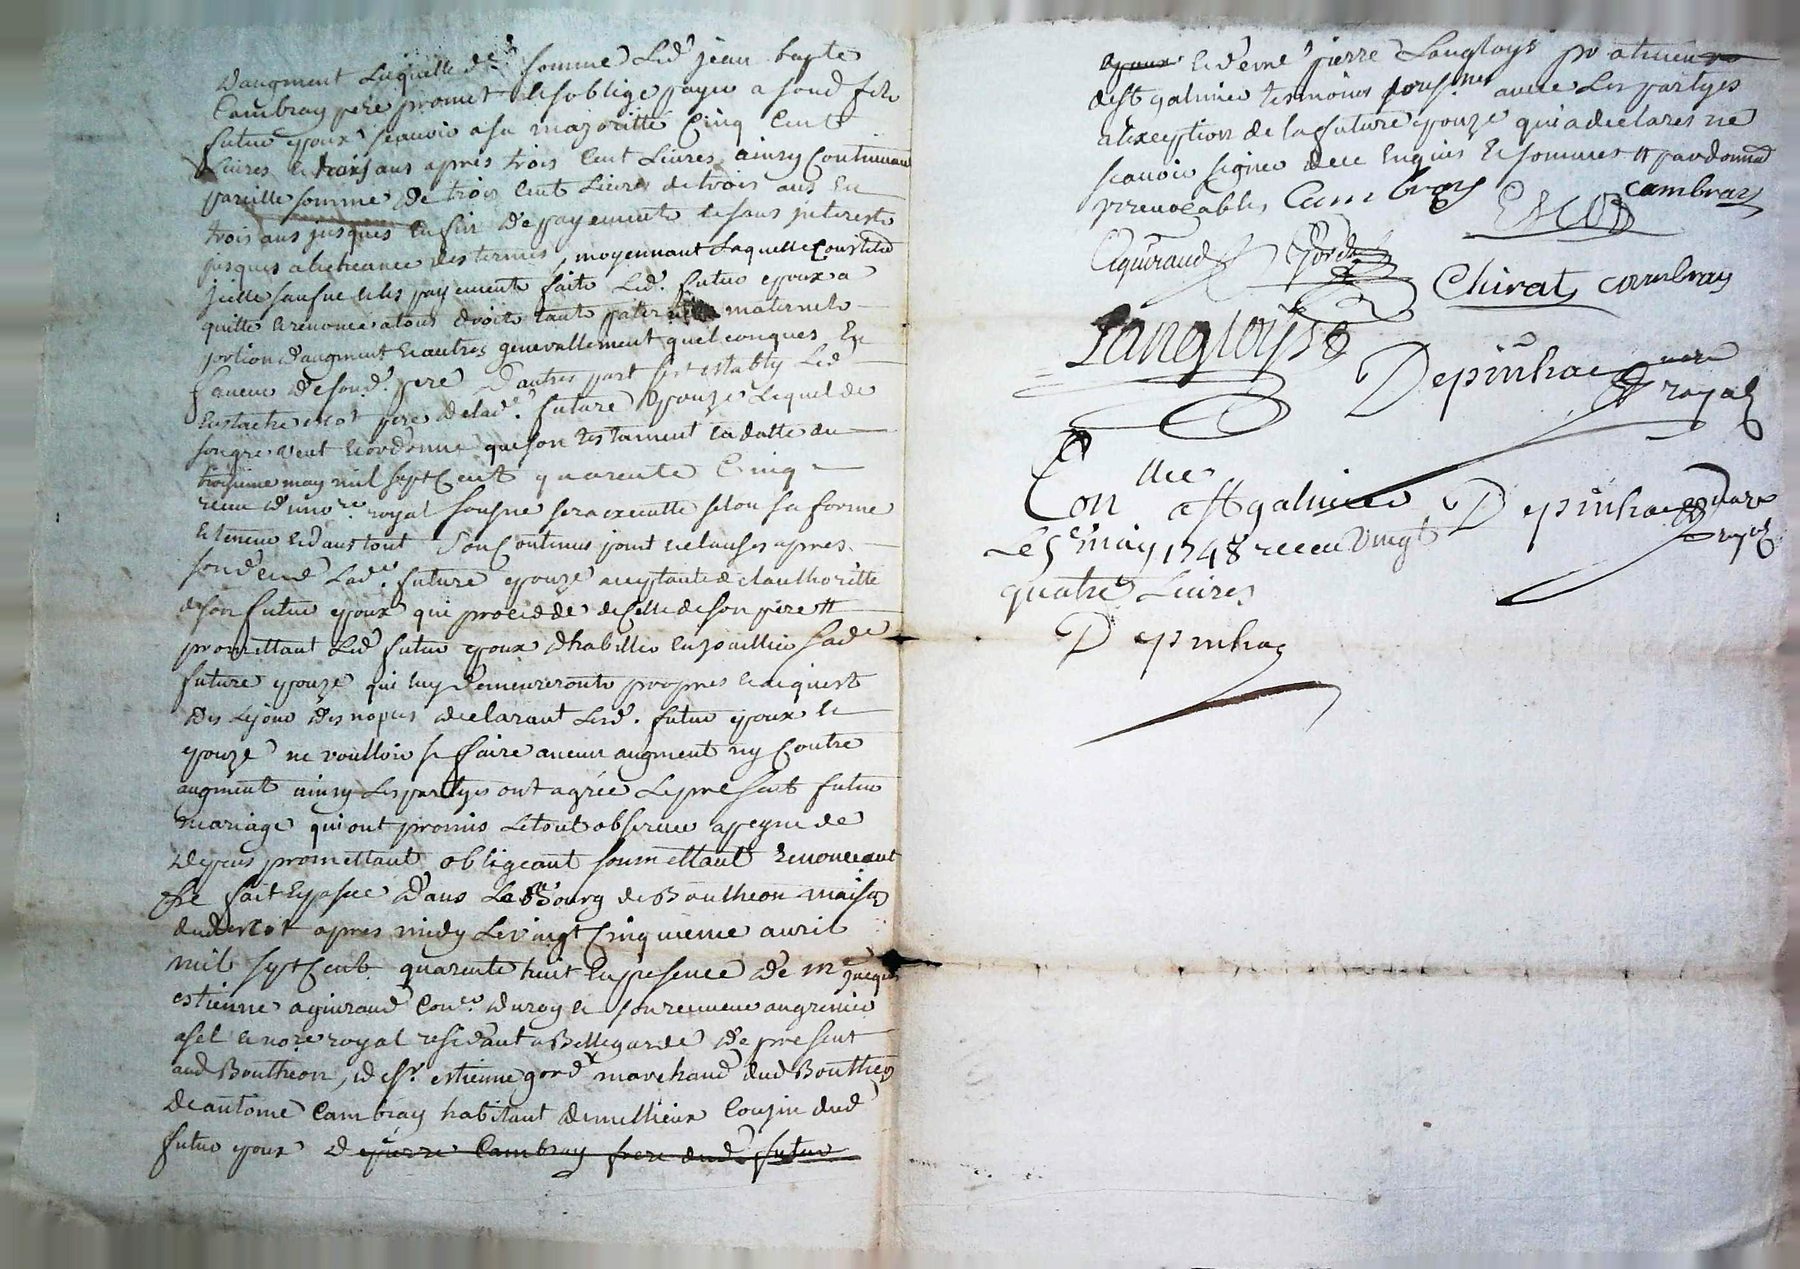 d'augment laquelle de. somme led jean bapte
Cambray pere promet et soblige payer a sond fils
futur epoux scavoir a sa majoritté Cinq Cent
Livres et trois ans apres trois Cent Livres ainsy Continuant
pareille somme de trois Cent Livres de trois ans en
trois ans jusques en fin de payement et sans interests
jusques a lecheance des termes, moyennant Laquelle Constitu
icelle sausue et les payements faits Led. futur epoux a
quitté et renoncé a tous droits tant paternels maternels
portion d'augment et autres generallement quelconques En
faveur de sond. pere D'autres part sest establly Led
Eustache escot pere de lad. future Epouze Lequel de
son gre veut et ordonne que son testament en datte du
troisieme may mil sept Cent quarente Cinq
receu d'un no.re royal sousne sera executté selon sa forme
et teneur et dans tout son Contenus joint et clauses apres
son deces Lad.e future epouze acceptante de lauthoritté
de son futur epoux qui procedde de Celle de son pere #
promettant Led futur epoux d'habiller enjoailler sade
future epouze qui luy demeureronts propres et acquest
des Le jour des nopces declarant Lesd. futur epoux et
epouze ne voulloir se faire aucun augment ny Contre
augment ainsy Les partyes ont agréé Le present futur
mariage qui ont promis Le tout observer a peyne de
depens promettant obligeant soumettant Renonceant
fte fait et passé dans Le Bourg de Boutheon maison
dud escot apres midy Le vingt Cinquieme avril
mil sept Cent quarente huit En presence de m jacques
estienne aguiraud Con.er du roy et son receveur au grenier
a sel et no.re royal residant a Bellegarde de present
aud Boutheon, de sr. estienne gord marchand dud Boutheon
de antoine Cambray habitant de meilleux Cousin dud
futur epoux de pierre Cambray frere dud futur
epoux et de me pierre Langloys praticien
de st galmier tesmoins sousnes avec Les partyes
a l'exception de la future epouze qui a declarés ne
scavoir signer de ce Enquis et sommes # par donnaon
irrevocables Cambray ESCOT Cambray
Aguiraud Gord Chirat Cambray
Langloys
Depinhac nore
royal
Con.lle a st galmier Depinhac nore
Le 5e may 1748 receu Vingt royal
quatre Livres
Depinhac